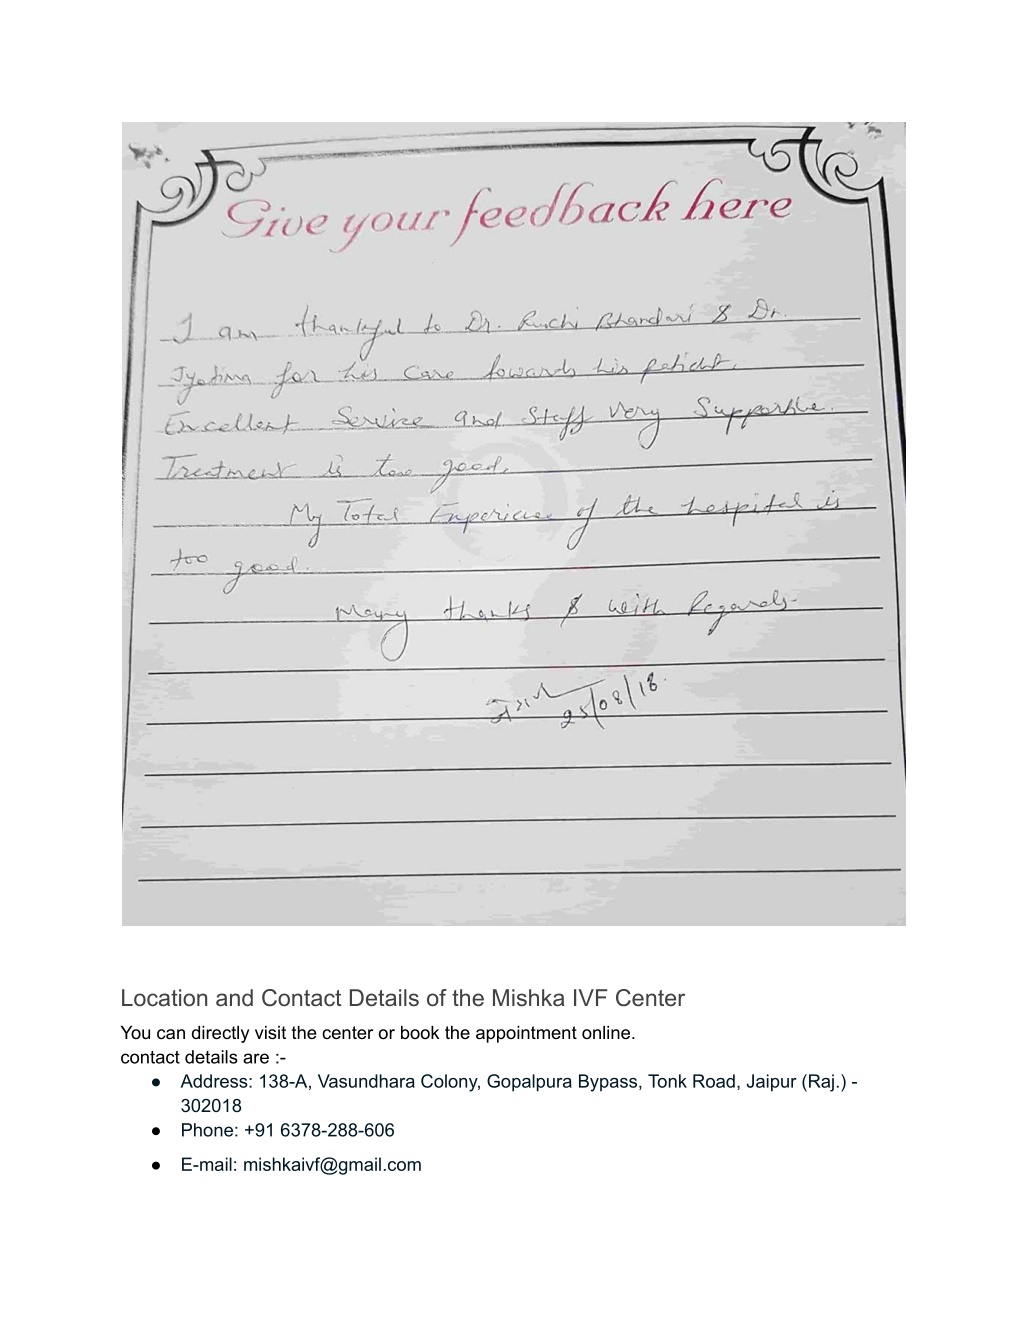 Give your feedback here
I am thankful to Dr. Ruchi Bhandari & Dr.
Jyotima for his care towards his patient.
Excellent Service and Staff very Supportive.
Treatment is too good.
My Total Experience of the hospital is
too good.
Many thanks & with Regards-
25/08/18.
Location and Contact Details of the Mishka IVF Center
You can directly visit the center or book the appointment online.
contact details are :-
● Address: 138-A, Vasundhara Colony, Gopalpura Bypass, Tonk Road, Jaipur (Raj.) -
302018
● Phone: +91 6378-288-606
● E-mail: mishkaivf@gmail.com